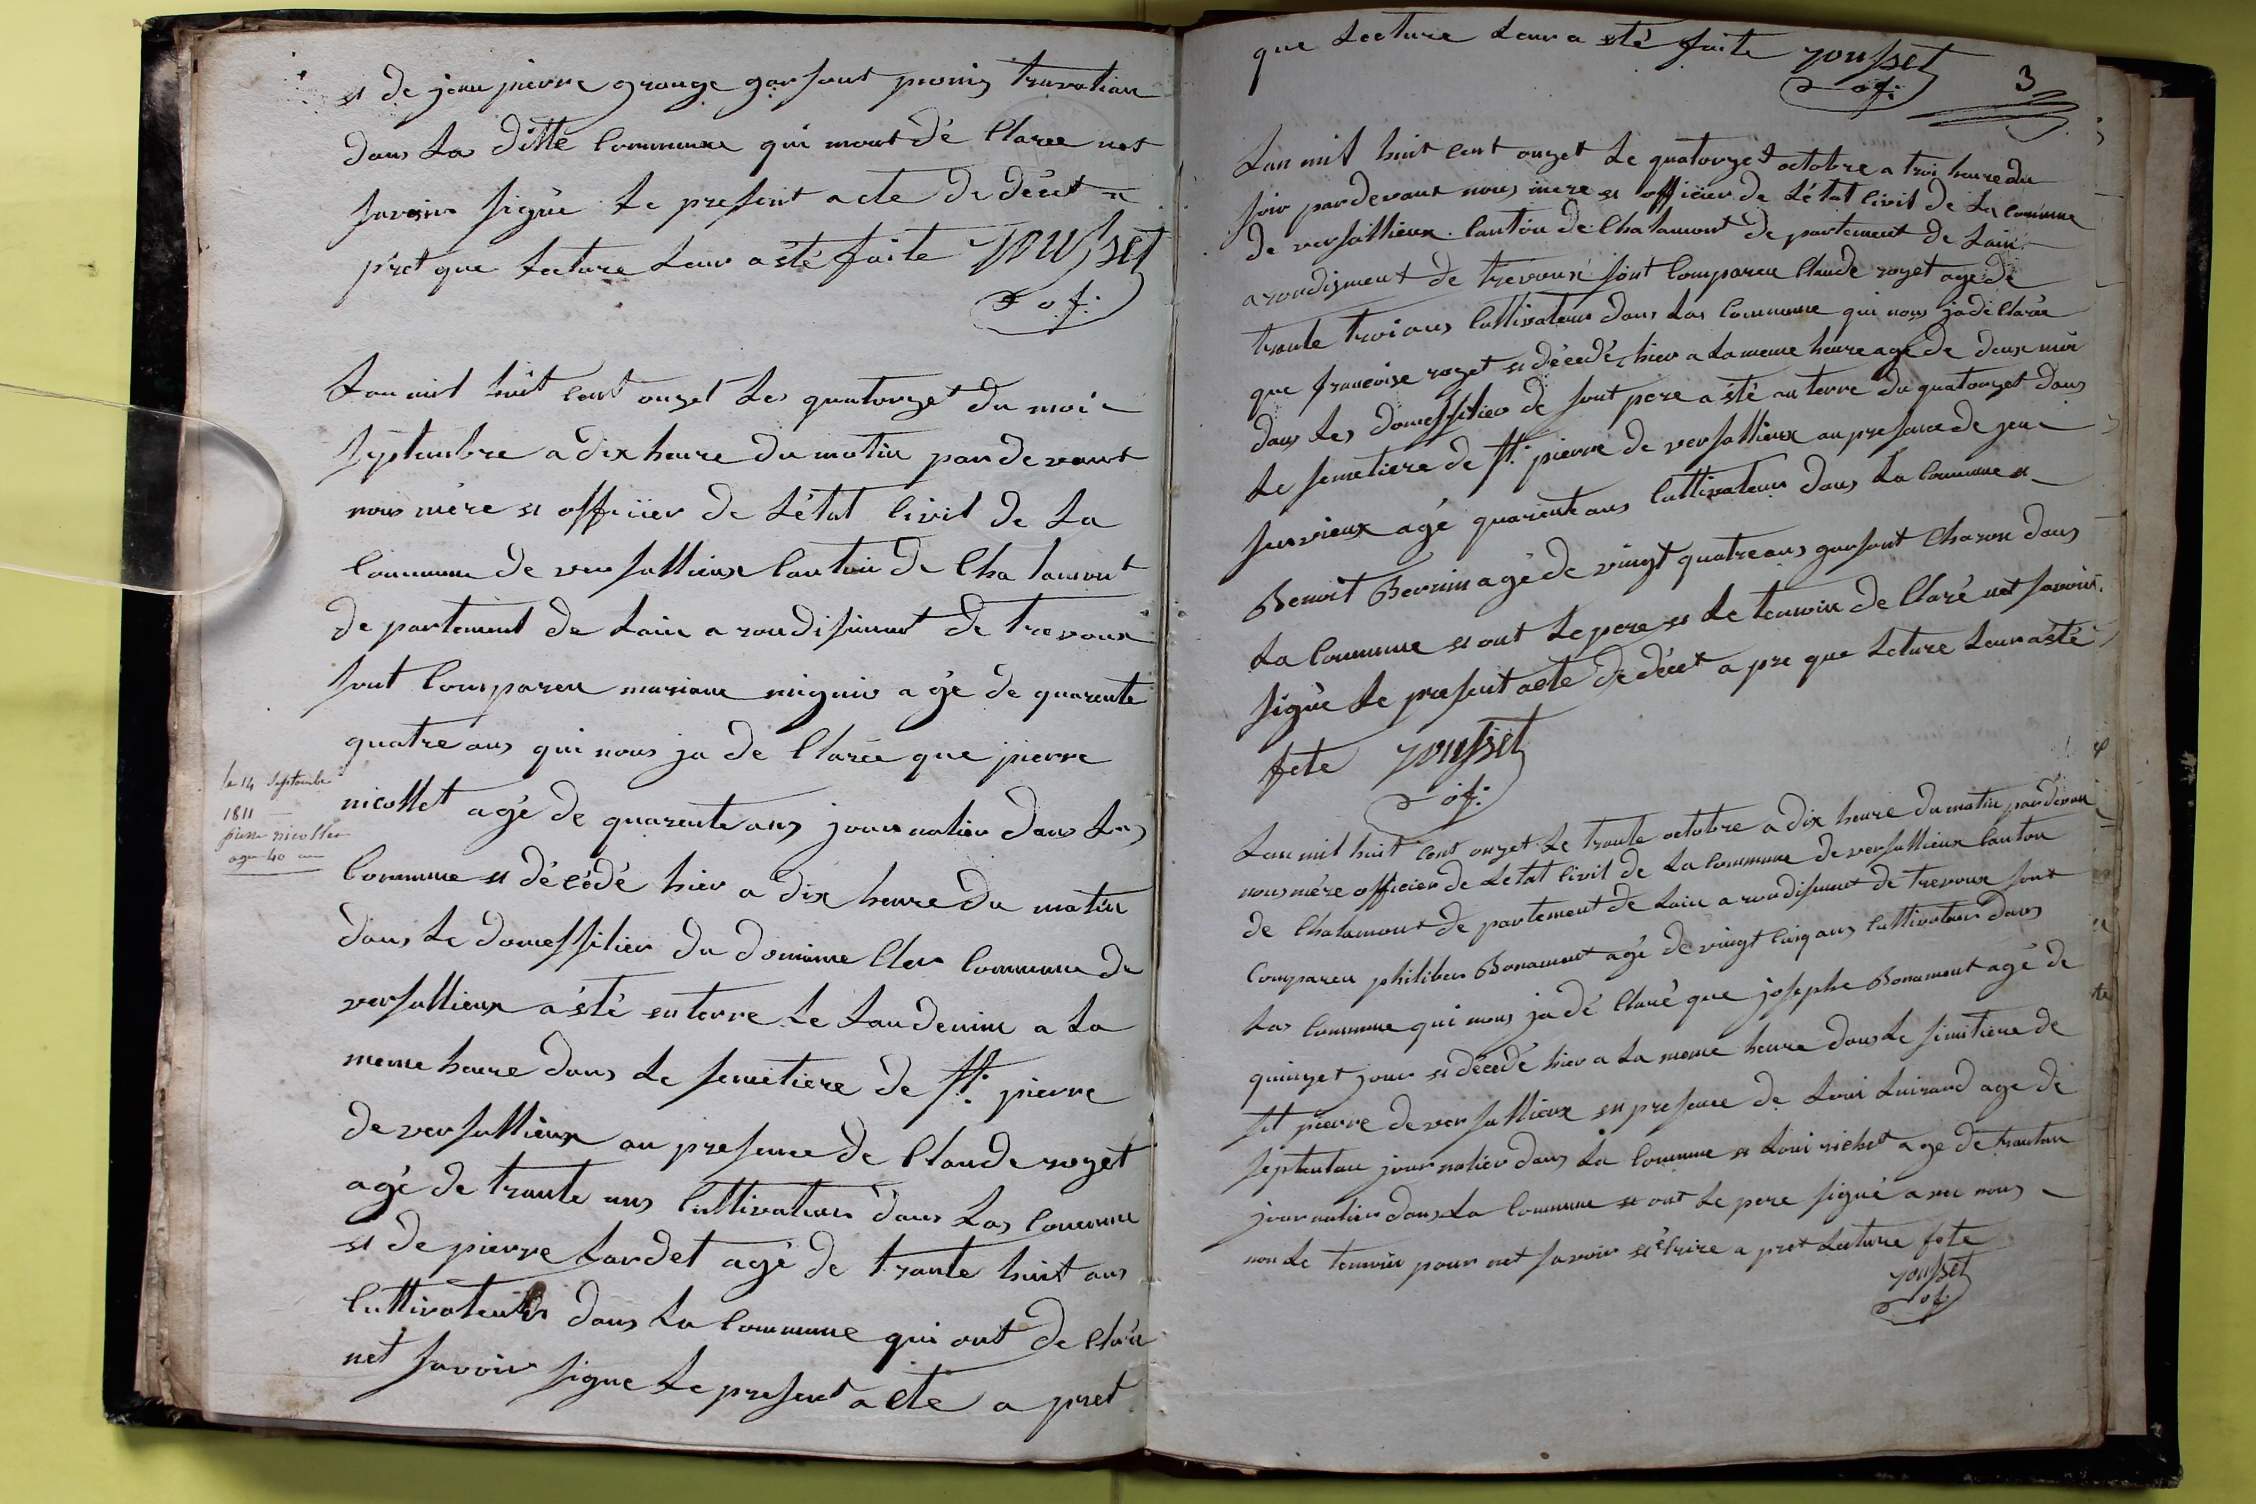 et de jean pierre grange garsont promis travalian
dans La ditte Commune qui mont dé Claree net
savoir signe Le present acte de décet a
pret que Lecture Leur a été faite Jousset
of:
Lan mil huit cent onzet Les quatorzet du moi
septambre a dix heure du matin par devant
nous mére et officiier de Létat Civil de La
Commune de versallieux Canton de Chalamont
de partement de Lain a rondisiment de trevoux
sont Compareu mariane miguin agé de quarente
quatre ans qui nous ja de Clarée que pierre
nicollet agé de quarente ans journatier dans Las
Commune et décédé hier a dix heure du matin
dans Le domessilier du domaine Cler Commune de
versallieux a été en terre Le Landemin a La
meme heure dans Le semetiere de st. pierre
de versallieux au presence de Claude rozet
agé de trante ans Cultivateur dans Las Commune
et de pierre Lardet agé de trante huit ans
Cultivateur dans La Commune qui ont de Claré
net savoir signe Le present acte a pret
le 14 septembre
1811
pierre nicollet
age 40 ans
que Lecture Leur a été faite Jousset
of:
3
Lan mil huit Cent onzet Le quatorzet octobre a troi heure du
soir par devant nous mere et officiier de Létat Civil de La Commune
de versallieux Canton de Chalamont de partement de Lain
a rondisment de trevoux sont Compareu Claude rozet agé de
trante troi ans Cultivateur dans Las Commune qui nous ja dé Clarée
que francoise rozet et décedé hier a La meme heure agé de deux moi
dans Les domessilier de sont pere a été en terre du quatorzet dans
Le semetiere de st. pierre de versallieux au presence de jean
survieux agé quarente ans Cultivateur dans La Commune et
Benoit Bernin agé de vingt quatre ans garsont Charon dans
La Commune et ont Le pere et Le temoin de Claré net savoir
signe Le present acte de décet a pre que Leture Leur a été
fete Jousset
of:
Lan mil huit Cent onzet Le trante octobre a dix heure du matin par devan
nous mére officier de Letat Civil de La Commune de versallieux Canton
de Chalamont de partement de Lain a rondisiment de trevoux sont
Compareu philiber Bonamout agé de vingt Cinq ans Cultivateur dans
Las Commune qui nous ja dé Claré que josephe Bonamout agé de
quinzet jour et décedé hier a La meme heure dans Le simitiere de
st pierre de versallieux en presence de Loui Luirand age de
septantan journatier dans La Commune et Loui richet age de trantan
journatier dans La Commune et ont Le pere signé avec nous
non Le temoin pour net savoir et Crire a pret Lecture fete
Jousset
of: